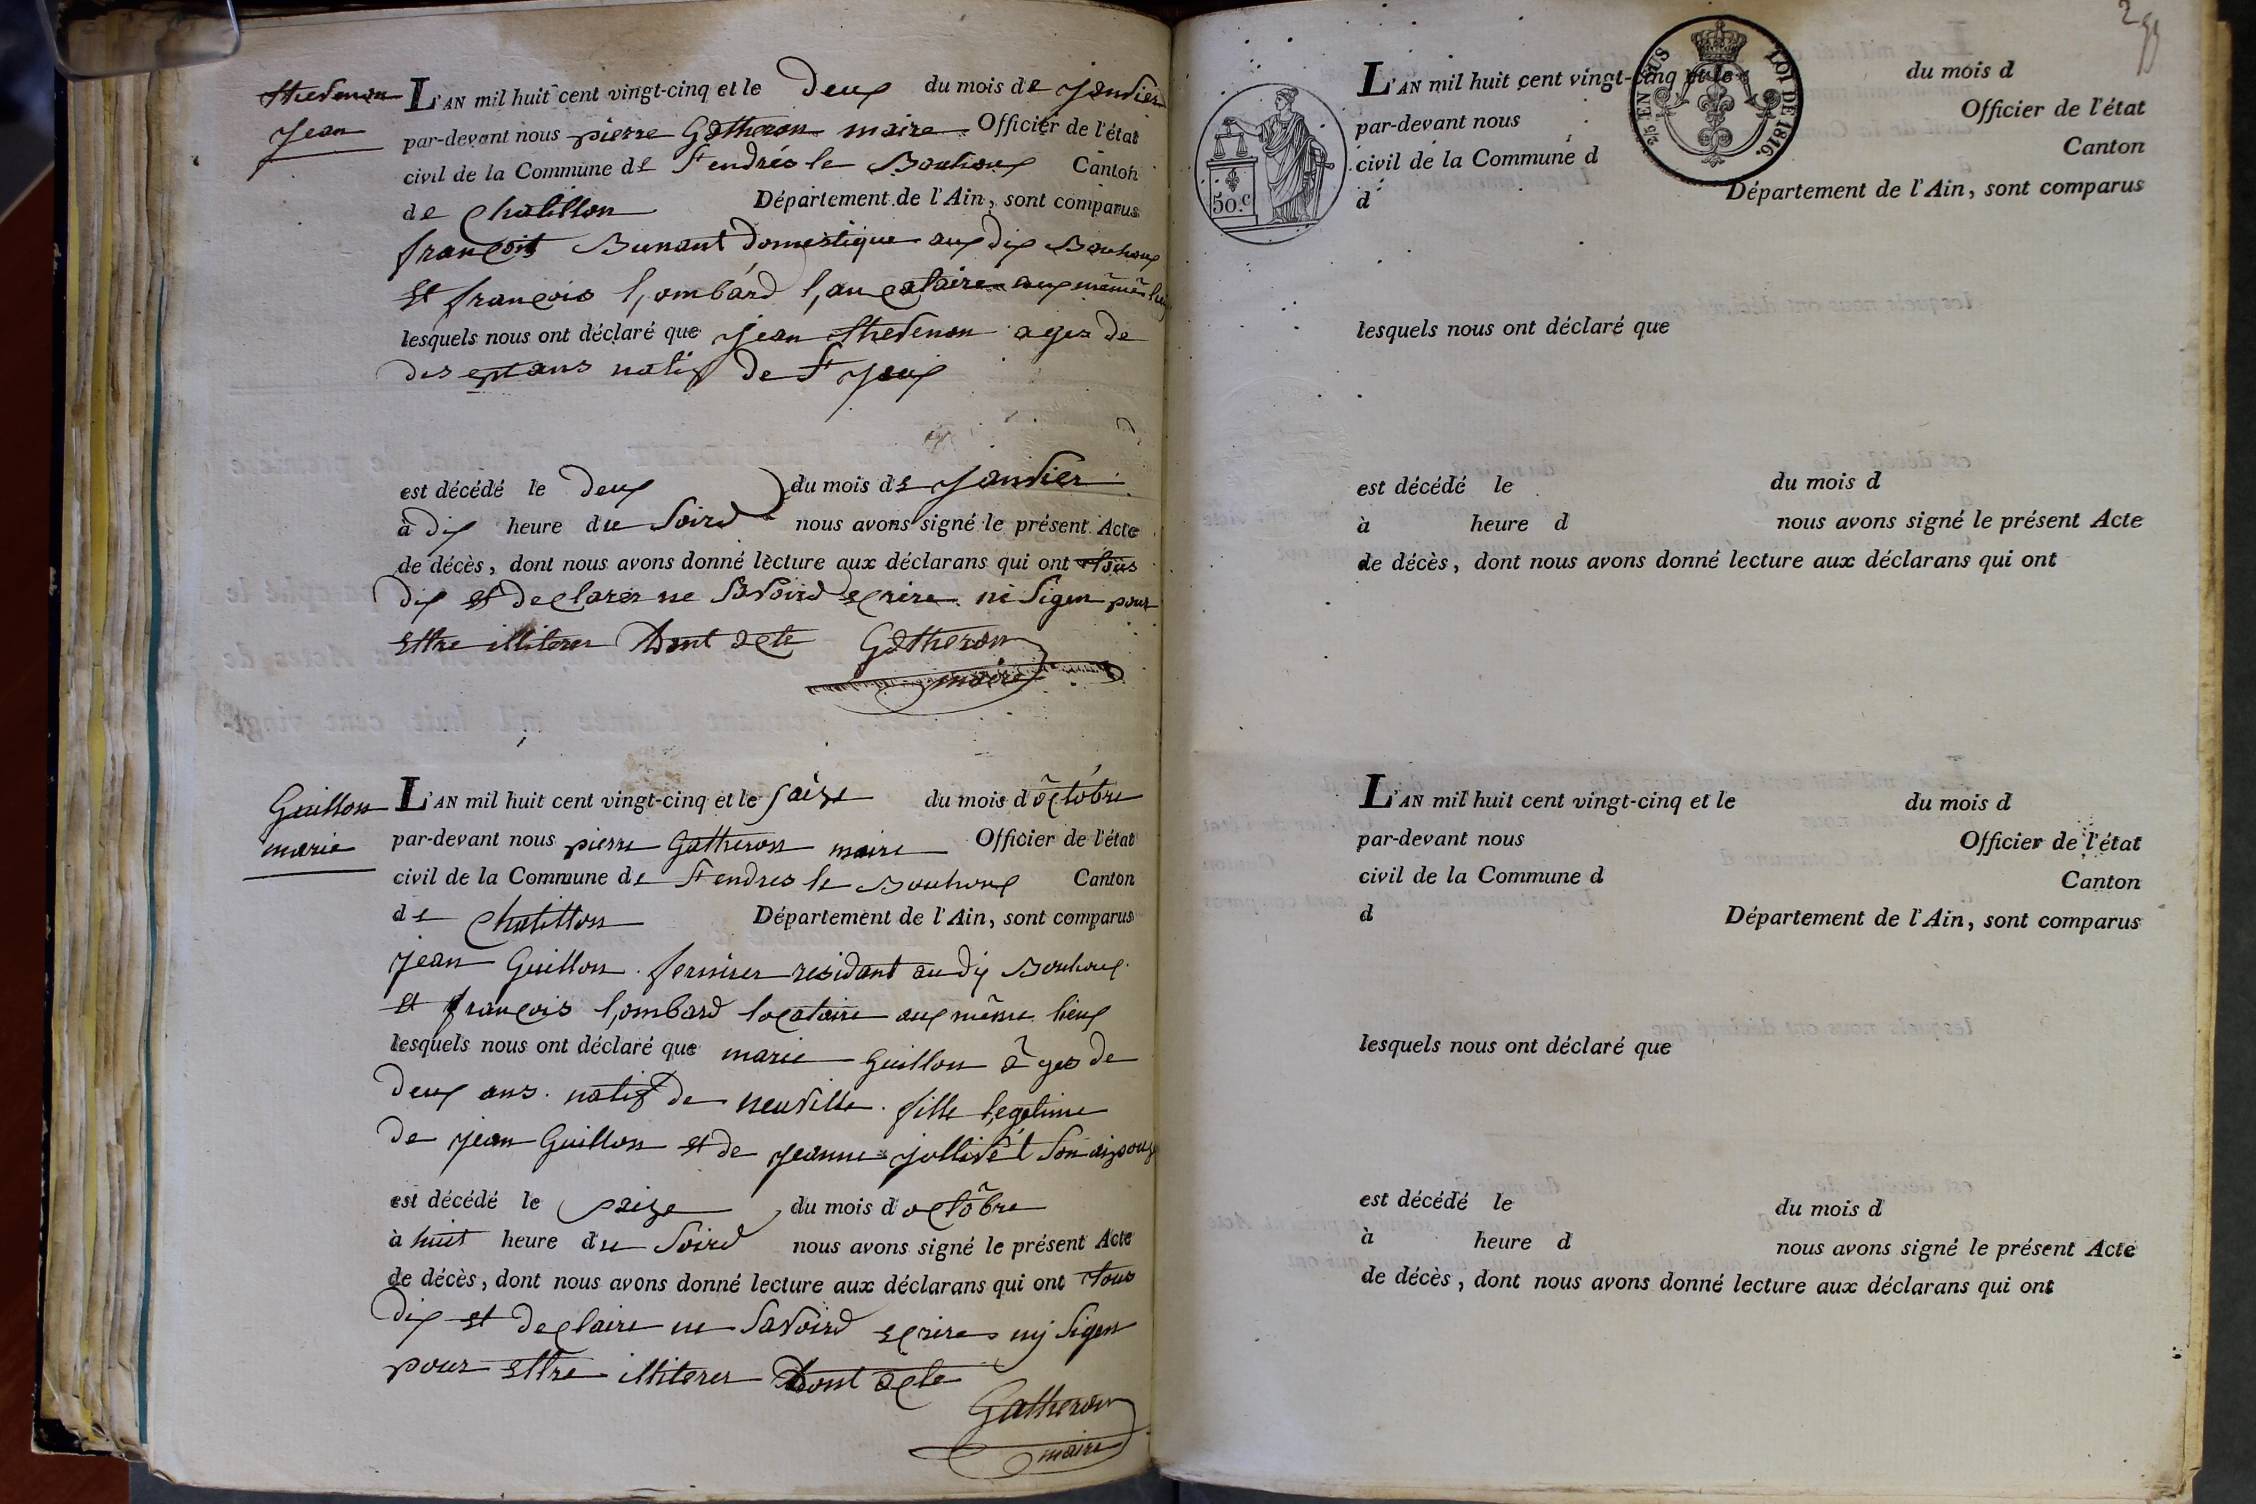 thevenon
jean
L'AN mil huit cent vingt-cinq et le deux du mois de janvier
par-devant nous pierre Gatheron maire Officier de l'état
civil de la Commune de St andrés le Bouhoux Canton
de chatillon Département de l'Ain, sont comparus
françois Bunant domestique aux dix Bouhoux
et françois lombard laucataire aux même lieu
lesquels nous ont déclaré que jean thevenon agez de
dis eptans natif de St
est décédé le deux du mois de janvier
à dix heure du soird nous avons signé le présent Acte
de décès, dont nous avons donné lecture aux déclarans qui ont tous
dix et declarer ne savoird ecrire ni sigen pour
ettre illiterer Dont acte Gatheron
maire
Guillon
marie
L'AN mil huit cent vingt-cinq et le saize du mois d octobre
par-devant nous pierre Gatheron maire Officier de l'état
civil de la Commune de St andres le Bouhoux Canton
de chatillon Département de l'Ain, sont comparus
jean Guillon fermier residant au dix Bouhoux
et françois lombard locataire aux même lieux
lesquels nous ont déclaré que marie Guillon âges de
deux ans natif de neuville fille legetime
de jean Guillon et de jeanne jollivét son
est décédé le saize du mois d octobre
à huit heure du soird nous avons signé le présent Acte
de décès, dont nous avons donné lecture aux déclarans qui ont tous
dix et declaire ne savoird ecrire nij sigen
pour ettre illiterer Dont acte
Gatheron
maire
50.c
25 EN SUS
LOI DE 1816.
L'AN mil huit cent vingt-cinq et le du mois d
par-devant nous Officier de l'état
civil de la Commune d Canton
d Département de l'Ain, sont comparus
lesquels nous ont déclaré que
est décédé le du mois d
à heure d nous avons signé le présent Acte
de décès, dont nous avons donné lecture aux déclarans qui ont
L'AN mil huit cent vingt-cinq et le du mois d
par-devant nous Officier de l'état
civil de la Commune d Canton
d Département de l'Ain, sont comparus
lesquels nous ont déclaré que
est décédé le du mois d
à heure d nous avons signé le présent Acte
de décès, dont nous avons donné lecture aux déclarans qui ont